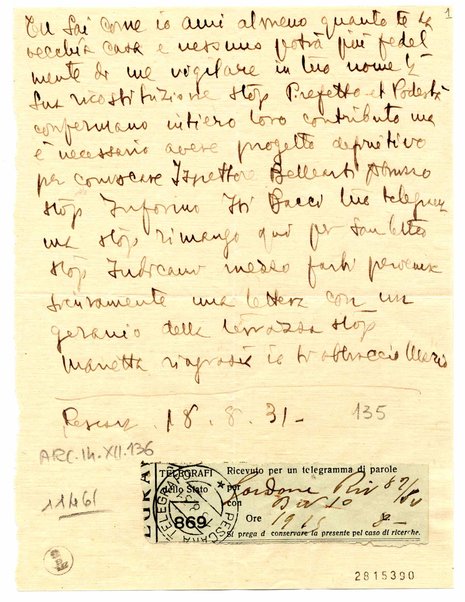 1
Tu sai come io ami almeno quanto te la
vecchia casa e nessuno potrà più fedel
mente di me vigilare in tuo nome la
sua ricostituzione stop Prefetto et Podestà
confermano intiero loro contributo ma
è necessario avere progetto definitivo
per convocare Ispettore Bellearti Abruzzo
stop Informo Bacci tuo telegram
ma stop rimango qui per
stop Indicami mezzo farti pervenire
sicuramente una lettera con un
geranio della terrazza stop
Marietta ringrazia io ti abbraccio Mario
Pescara 18.8.31-
135
ARC.14.XII.136
11461
TELEGRAFI
dello Stato
869
PESCARA TELEGRAFO
Ricevuto per un telegramma di parole
per Gardone Riv
con
Ore
Si prega di conservare la presente pel caso di ricerche.
2815390